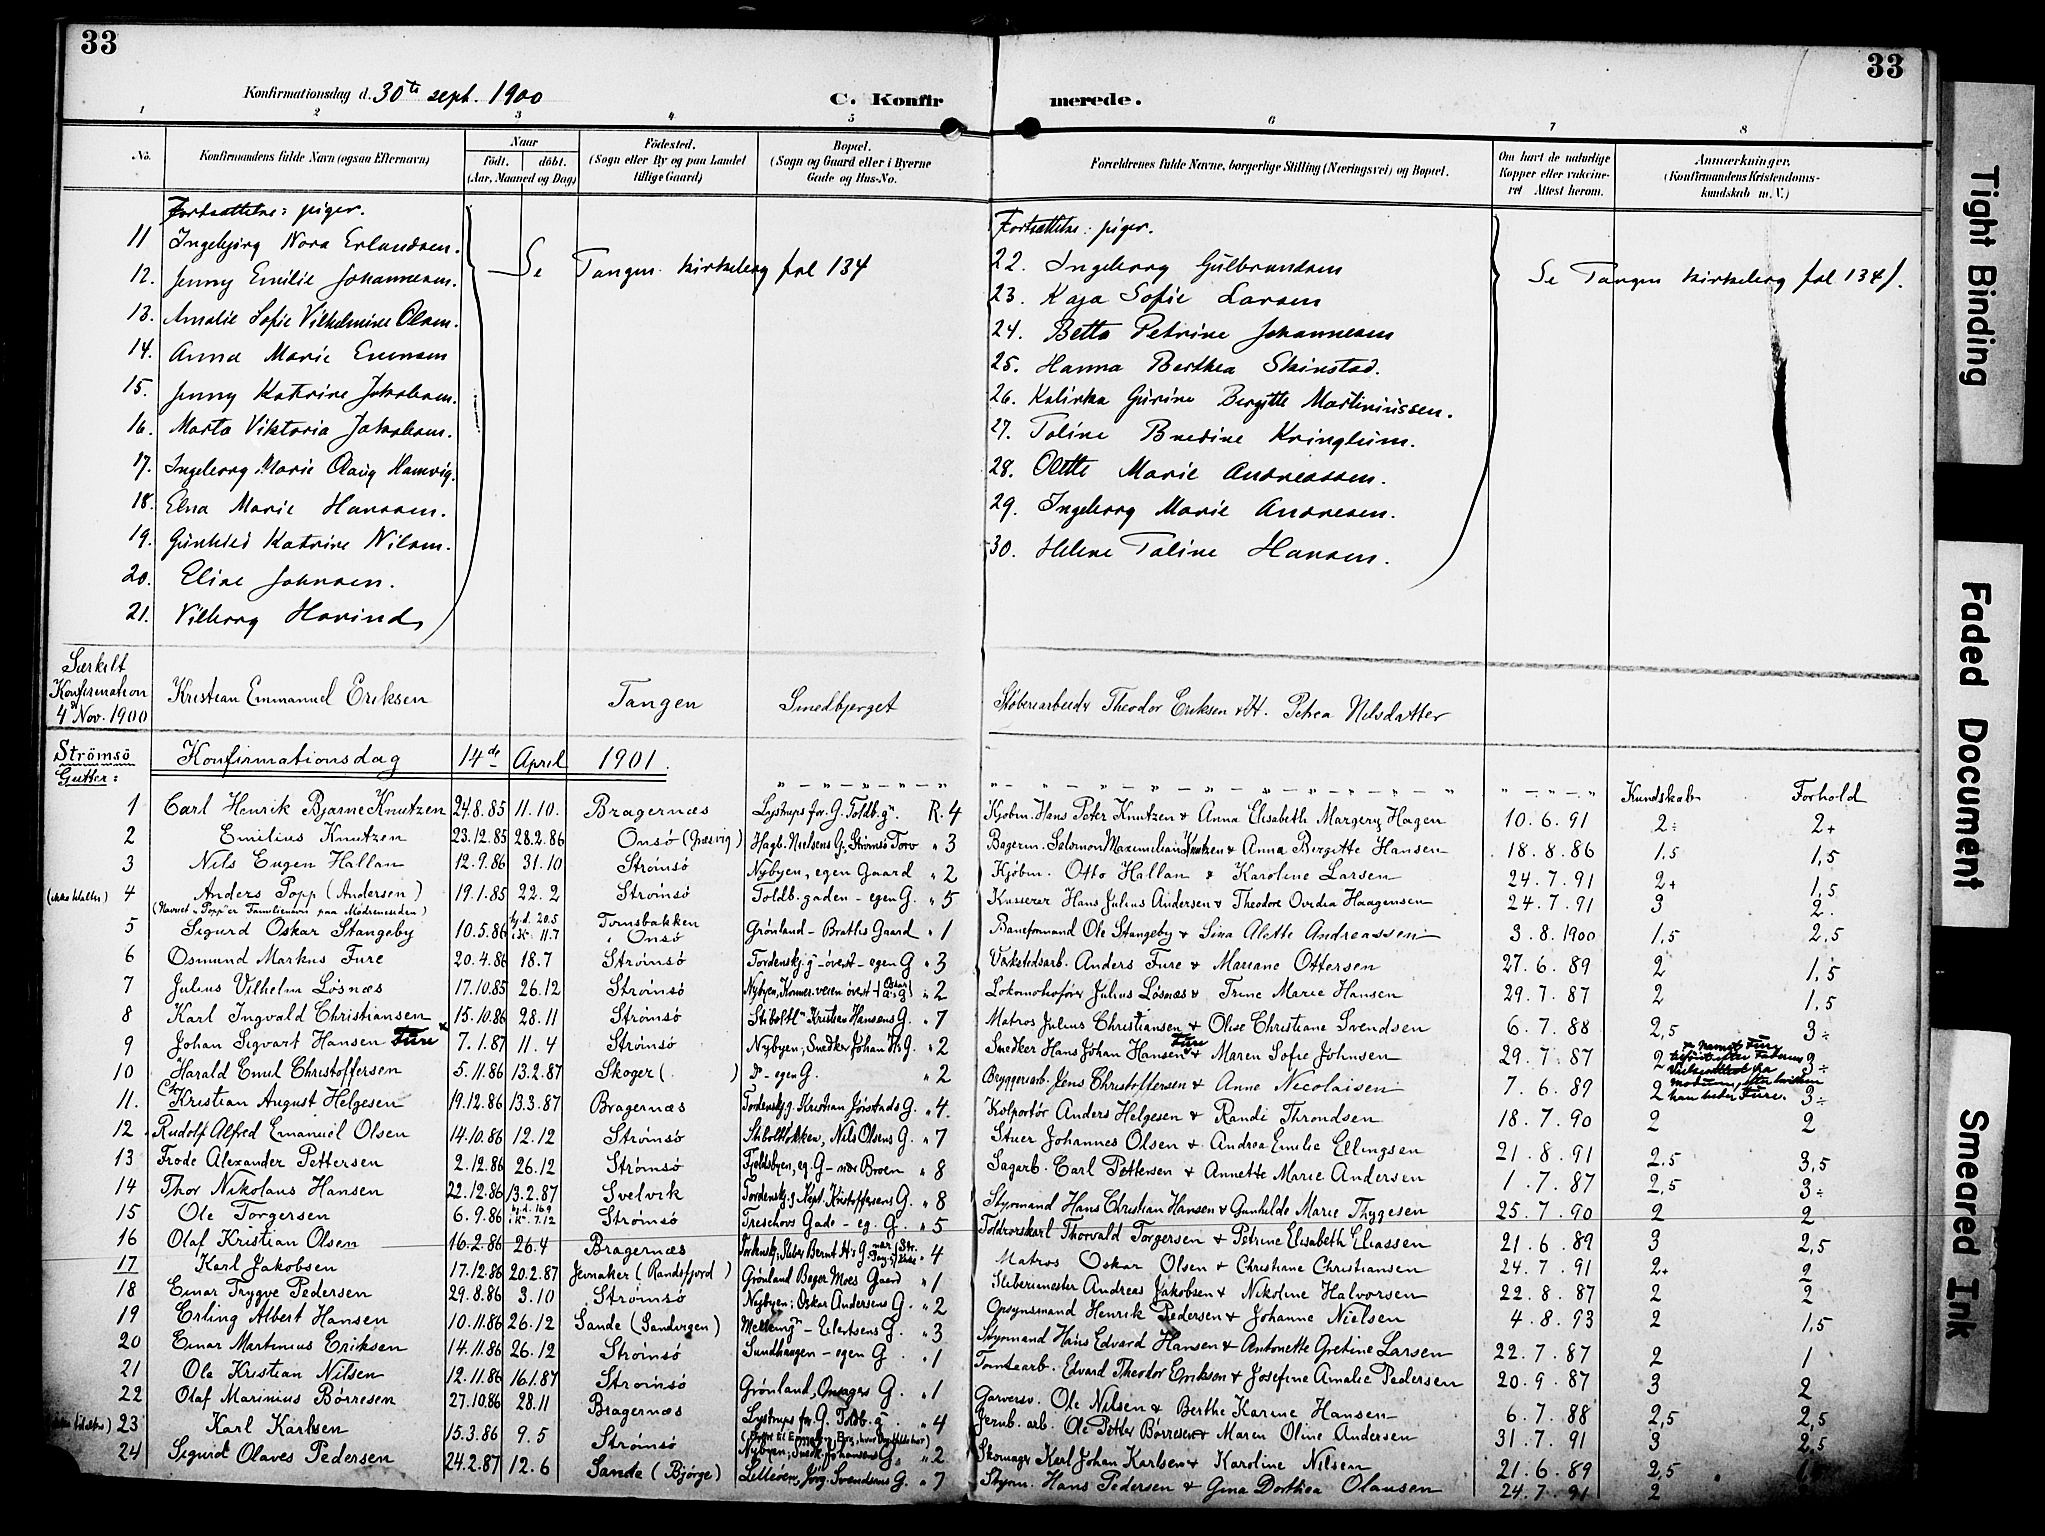 33
33
Konfirmationsdag d. 30te sept. 1900
C. Konfir merede.
1 2 3 4 5 6 7 8
No.
Konfirmandens fulde Navn (ogsaa Efternavn)
Naar
födt. döbt.
(Aar, Maaned og Dag)
Födested.
(Sogn eller By og paa Landet
tillige Gaard)
Bopæl.
(Sogn og Gaard eller i Byerne
Gade og Hus-No.
Forældrenes fulde Navne, borgerlige Stilling (Næringsvei) og Bopæl.
Om havt de naturlige
Kopper eller vakcine-
ret Attest herom.
Anmærkninger.
(Konfirmandens Kristendoms-
kundskab m. V.)
Fortsættelse: piger.
11 Ingebjörg Nora Erlandsen.
12. Jenny Emilie Johannesen.
13. Amalie Sofie Vilhelmine Olsen.
14. Anna Marie Evensen
15. Jenny Katrine Jakobsen.
16. Marta Viktoria Jakobsen.
17. Ingeborg Marie Olaug Hamvig.
18. Elna Marie Hanssen.
19. Gunhild Katrine Nilsen.
20. Elise Johnsen.
21. Vilborg Hovind
Se Tangen kirkebog fol 134
Fortsættelse: piger.
22. Ingeborg Gulbrandsen
23. Kaja Sofie Larsen
24. Betta Petrine Johannesen
25. Hanna Berthea Skinstad.
26. Kalinka Gurine Bergitte Martiniussen.
27. Toline Bredine Kringlum.
28. Olette Marie Andreassen.
29. Ingeborg Marie Andresen.
30. Helene Toline Hansen.
Se Tangen kirkebog fol 134f.
Særkilt
Konfirmation
4 Nov. 1900
Kristian Emmanuel Eriksen Tangen Smedbjerget Støberiarbeider Theodor Eriksen & H. Petrea Nilsdatter
Strömsö
Gutter:
Konfirmationsdag 14de April 1901.
Kundskab Forhold
1 Carl Henrik Bjarne Knutzen 24.8.85 11.10. Bragernæs Lystrups for. G. Toldb.g. R. 4 Kjøbm. Hans Peter Knutzen & Anna Elisabeth Margery Hagen 10.6.91 2÷ 2+
2 Emilius Knutzen 23.12.85 28.2.86 Onsö (Græsvig) Hagb. Nielsens G. Strömsö Torv " 3 Bagerm. Salomon Maximilian Knutzen & Anna Birgitte Hansen 18.8.86 1.5 1,5
3 Nils Eugen Hallan 12.9.86 31.10 Strömsö Nybyen, egen Gaard " 2 Kjöbm. Otto Hallan & Karoline Larsen 24.7.91 2+ 1,5
4 Anders Popp (Andersen) 19.1.85 22.2 Strömsö Toldb.gaden - egen G. " 5 Kasserer Hans Julius Andersen & Theodore Ovidia Haagensen 24.7.91 3 2.
(Navnet "Popp" er Familienavn paa Mödrenesiden)
5 Sigurd Oskar Stangeby 10.5.86 hj.d. 20.5 i K. 11.7 Tornsbakken i Onsö Grønland - Braths Gaard " 1 Baneformand Ole Stangeby & Lina Alette Andreassen 3.8.1900 1,5 2,5
6 Osmund Markus Fure 20.4.86 18.7 Strömsö Tordenskj.g - överst - egen G " 3 Værkstedsarb. Anders Fure & Mariane Ottersen 27.6.89 2 1,5
7 Julius Vilhelm Lösnæs 17.10.85 26.12 Strömsö Nybyen, Konnerudveien överst " 2 Lokomotivförer Julius Lösnæs & Trine Marie Hansen 29.7.87 2 1,5
8 Karl Ingvald Christiansen 15.10.86 28.11 Strömsö Stiboltl. Kristian Hansens G. " 7 Matros Julius Christiansen & Olise Christiane Svendsen 6.7.88 2,5 3÷
9 Johan Sigvart Hansen Fure 7.1.87 11.4 Strömsö Nybyen; Snedker Johan H's G. " 2 Snedker Hans Johan Hansen Fure & Maren Sofie Johnsen 29.7.87 2 3÷
10 Harald Emil Christoffersen 5.11.86 13.2.87 Skoger ( ) do - egen G. " 2 Bryggeriarb. Jens Christoffersen & Anne Nicolaisen 7.6.89 2 3÷
11. Kristian August Helgesen 19.12.86 13.3.87 Bragernæs Tordenskj.g. Kristian Jörstads G. " 4. Kolportör Anders Helgesen & Randi Throndsen 18.7.90 2 2
12 Rudolf Alfred Emanuel Olsen 14.10.86 12.12 Strömsö Stiboltløkken, Nils Olsens G. " 7 Stuer Johannes Olsen & Andrea Emilie Ellingsen 21.8.91 2.5 3,5
13 Frode Alexander Pettersen 2.12.86 26.12 Strömsö Fjeldsbyen, eg. G - nær Broen " 8 Sagarb. Carl Pettersen & Annette Marie Andersen 1.7.87 2,5 3÷
14 Thor Nikolaus Hansen 22.12.86 13.2.87 Svelvik Tordenskj.g. Kapt. Kristoffersens G. " 8 Styrmand Hans Christian Hansen & Gunhilde Marie Thygesen 25.7.90 2 2
15 Ole Torgersen 6.9.86 hj.d. 16.9 i K. 7.12 Strömsö Treschovs Gade - eg. G. " 5 Toldrorskarl Thorvald Torgersen & Petrine Elisabeth Eliassen 21.6.89 3 2,5
16 Olaf Kristian Olsen 16.2.86 26.4 Bragernæs " 4 Matros Oskar Olsen & Christiane Christiansen 24.7.91 2+ 2
17 Karl Jakobsen 17.12.86 20.2.87 Jevnaker (Randsfjord) Grønland Bager Moes Gaard " 1 Sliberimester Andreas Jakobsen & Nikoline Halvorsen 22.8.87 2 2
18 Einar Trygve Pedersen 29.8.86 3.10 Strömsö Nybyen; Oskar Andersens G. " 2 Opsynsmand Henrik Pedersen & Johanne Nielsen 4.8.93 2 1,5
19 Erling Albert Hansen 10.11.86 26.12 Sande (Sandvigen) Eilertsens G. " 3 Styrmand Hans Edvard Hansen & Antonette Gretine Larsen 22.7.87 2 1
20 Einar Martinius Eriksen 14.11.86 26.12 Strömsö Sundhaugen - egen G " 1 Tomtearb. Edvard Theodor Eriksen & Josefine Amalie Pedersen 20.9.87 3 2
21 Ole Kristian Nilsen 12.11.86 16.1.87 Strömsö Grønland, G. " 1 Garversv. Ole Nilsen & Berthe Karine Hansen 6.7.88 2,5 2,5
22 Olaf Marinius Börresen 27.10.86 28.11 Bragernæs Lystrups for. G. Toldb.g. " 4 Jernb.arb. Ole Petter Børresen & Maren Oline Andersen 31.7.91 3 2,5
23 Karl Karlsen 15.3.86 9.5 Strömsö Nybyen; Snedk. Johansens G. " 2 Skomager Karl Johan Karlsen & Karoline Nilsen 21.6.89 2,5
24 Sigurd Olaves Pedersen 24.2.87 12.6 Sande (Bjørge) Lilleven, Jörg. Svendsens G. " 7 Styrm. Hans Pedersen & Gina Dorthea Olausen 24.7.91 2
Tight Binding
Faded Document
Smeared Ink